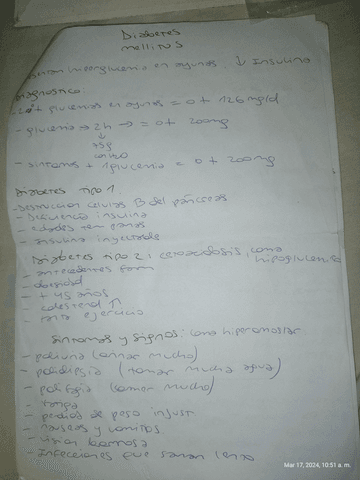 Diabetes
mellitus
hiperglucemia en ayunas ↓ Insulina
Diagnostico
glucemias en ayunas = o + 126 mg/dl
- glucemia → 2h → = o + 200mg
↓
75g
con H2O
- sintomas + 1 glucemia = o + 200mg
Diabetes tipo 1
- Destruccion celulas B del páncreas
- Deficiencia insulina
- edades tempranas
- insulina inyectable
Diabetes tipo 2: cetoacidosis, coma
hipoglucemico
- antecedentes fam
- obesidad
- + 45 años
- colesterol ↑
- falta ejercicio
Sintomas y signos: coma hiperosmolar
- poliuria (orinar mucho)
- polidipsia (tomar mucha agua)
- polifagia (comer mucho)
- fatiga
- perdida de peso injust
- nauseas y vomitos
- vision borrosa
- Infecciones que sanan lento
Mar 17, 2024, 10:51 a. m.